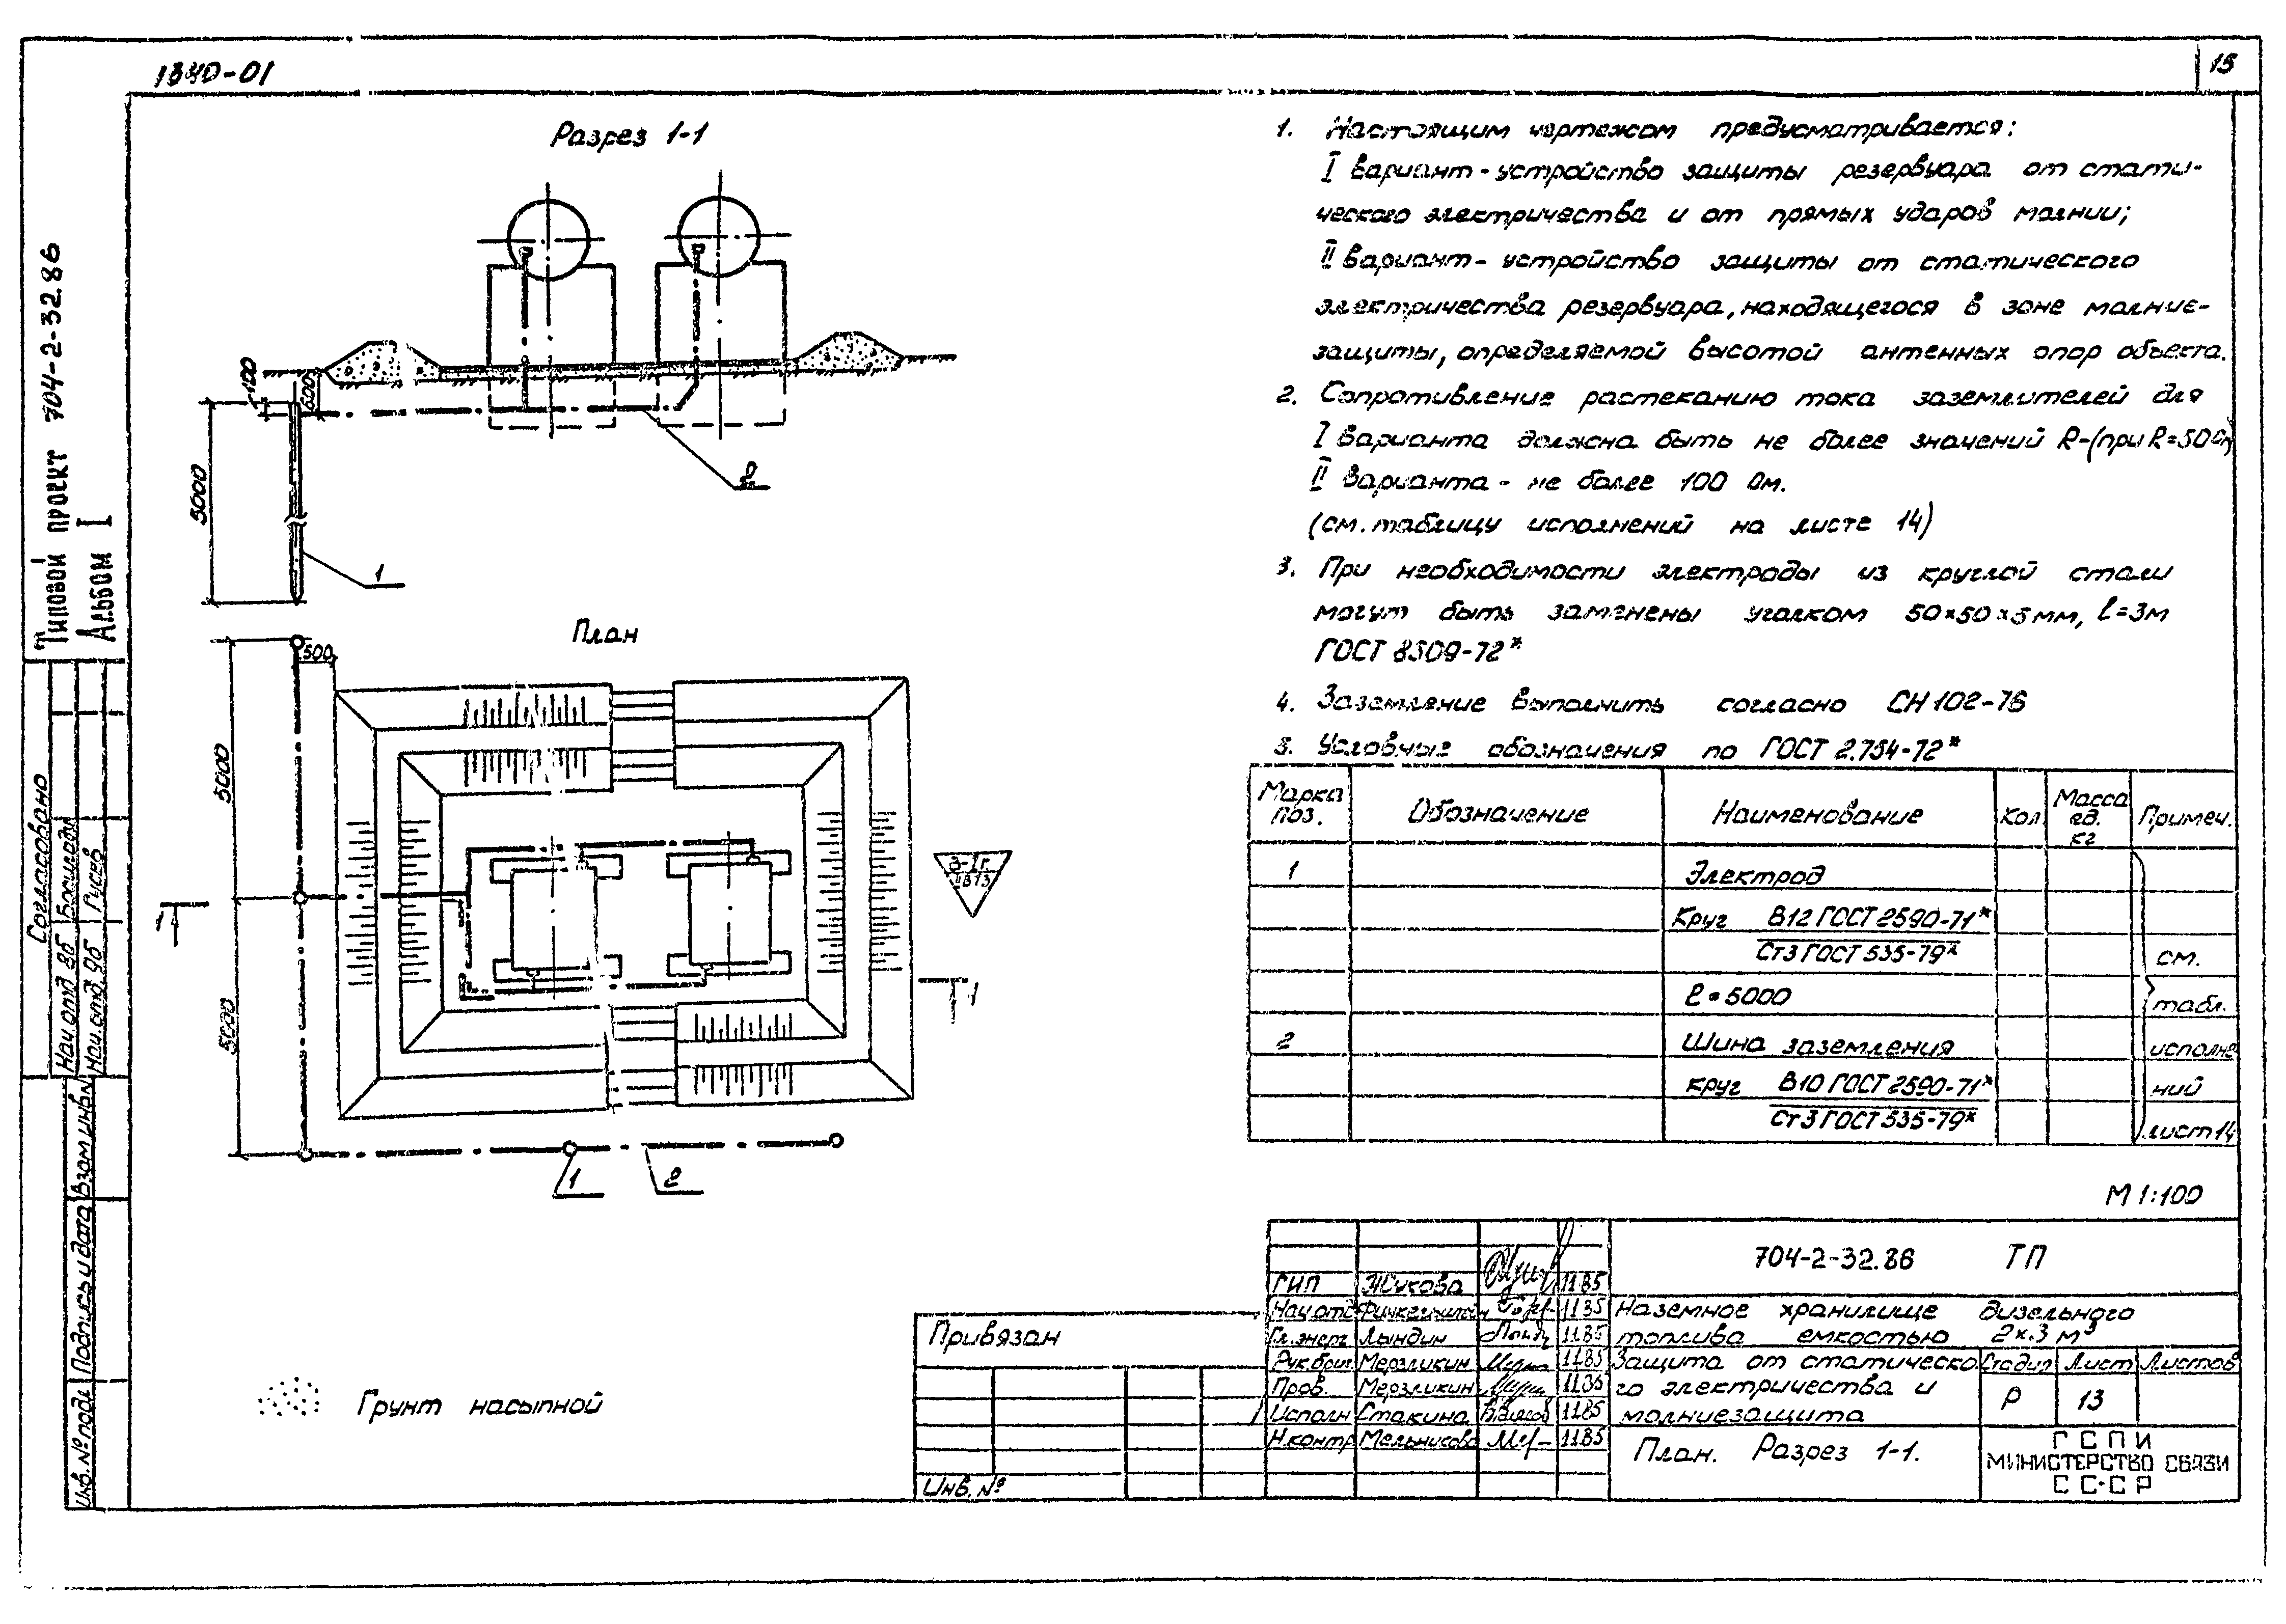 1840-01
15
Типовой проект 704-2-32.86
Альбом I
Разрез 1-1
100
600
5000
1
2
План
500
5000
5000
1
1
1
2
Грунт насыпной
1. Настоящим чертежом предусматривается:
I вариант - устройство защиты резервуара от стати-
ческого электричества и от прямых ударов молнии;
II вариант - устройство защиты от статического
электричества резервуара, находящегося в зоне молние-
защиты, определяемой высотой антенных опор объекта.
2. Сопротивление растеканию тока заземлителей для
I варианта должна быть не более значений R-(при R=50 Ом)
II варианта - не более 100 Ом.
(см. таблицу исполнений на листе 14)
3. При необходимости электроды из круглой стали
могут быть заменены уголком 50×50×5мм, l=3м
ГОСТ 8509-72*
4. Заземление выполнить согласно СН 102-76
5. Условные обозначения по ГОСТ 2.754-72*
Марка поз. Обозначение Наименование Кол Масса ед. кг Примеч.
1 Электрод
Круг В12 ГОСТ 2590-71*
Ст3 ГОСТ 535-79*
см.
ℓ=5000
табл.
2 Шина заземления
исполне
круг В10 ГОСТ 2590-71*
ний
Ст3 ГОСТ 535-79*
лист 14
М 1:100
704-2-32.86 ТП
ГИП Жукова 11.85
Нач.отд Финкельштейн 11.85
Гл.энерг Лындин 11.85
Рук.бриг Мерзликин 11.85
Пров. Мерзликин 11.85
Исполн Стакина 11.85
Н.контр Мельникова 11.85
Наземное хранилище дизельного
топлива емкостью 2×3 м³
Защита от статическо
го электричества и
молниезащита
Стадия Лист Листов
Р 13
План. Разрез 1-1.
ГСПИ
МИНИСТЕРСТВО СВЯЗИ
СССР
Привязан
Инв. №
Согласовано
Нач.отд 8б
Нач.отд. 9б Гусев
Взам инв.N
Подпись и дата
Инв.№ подл